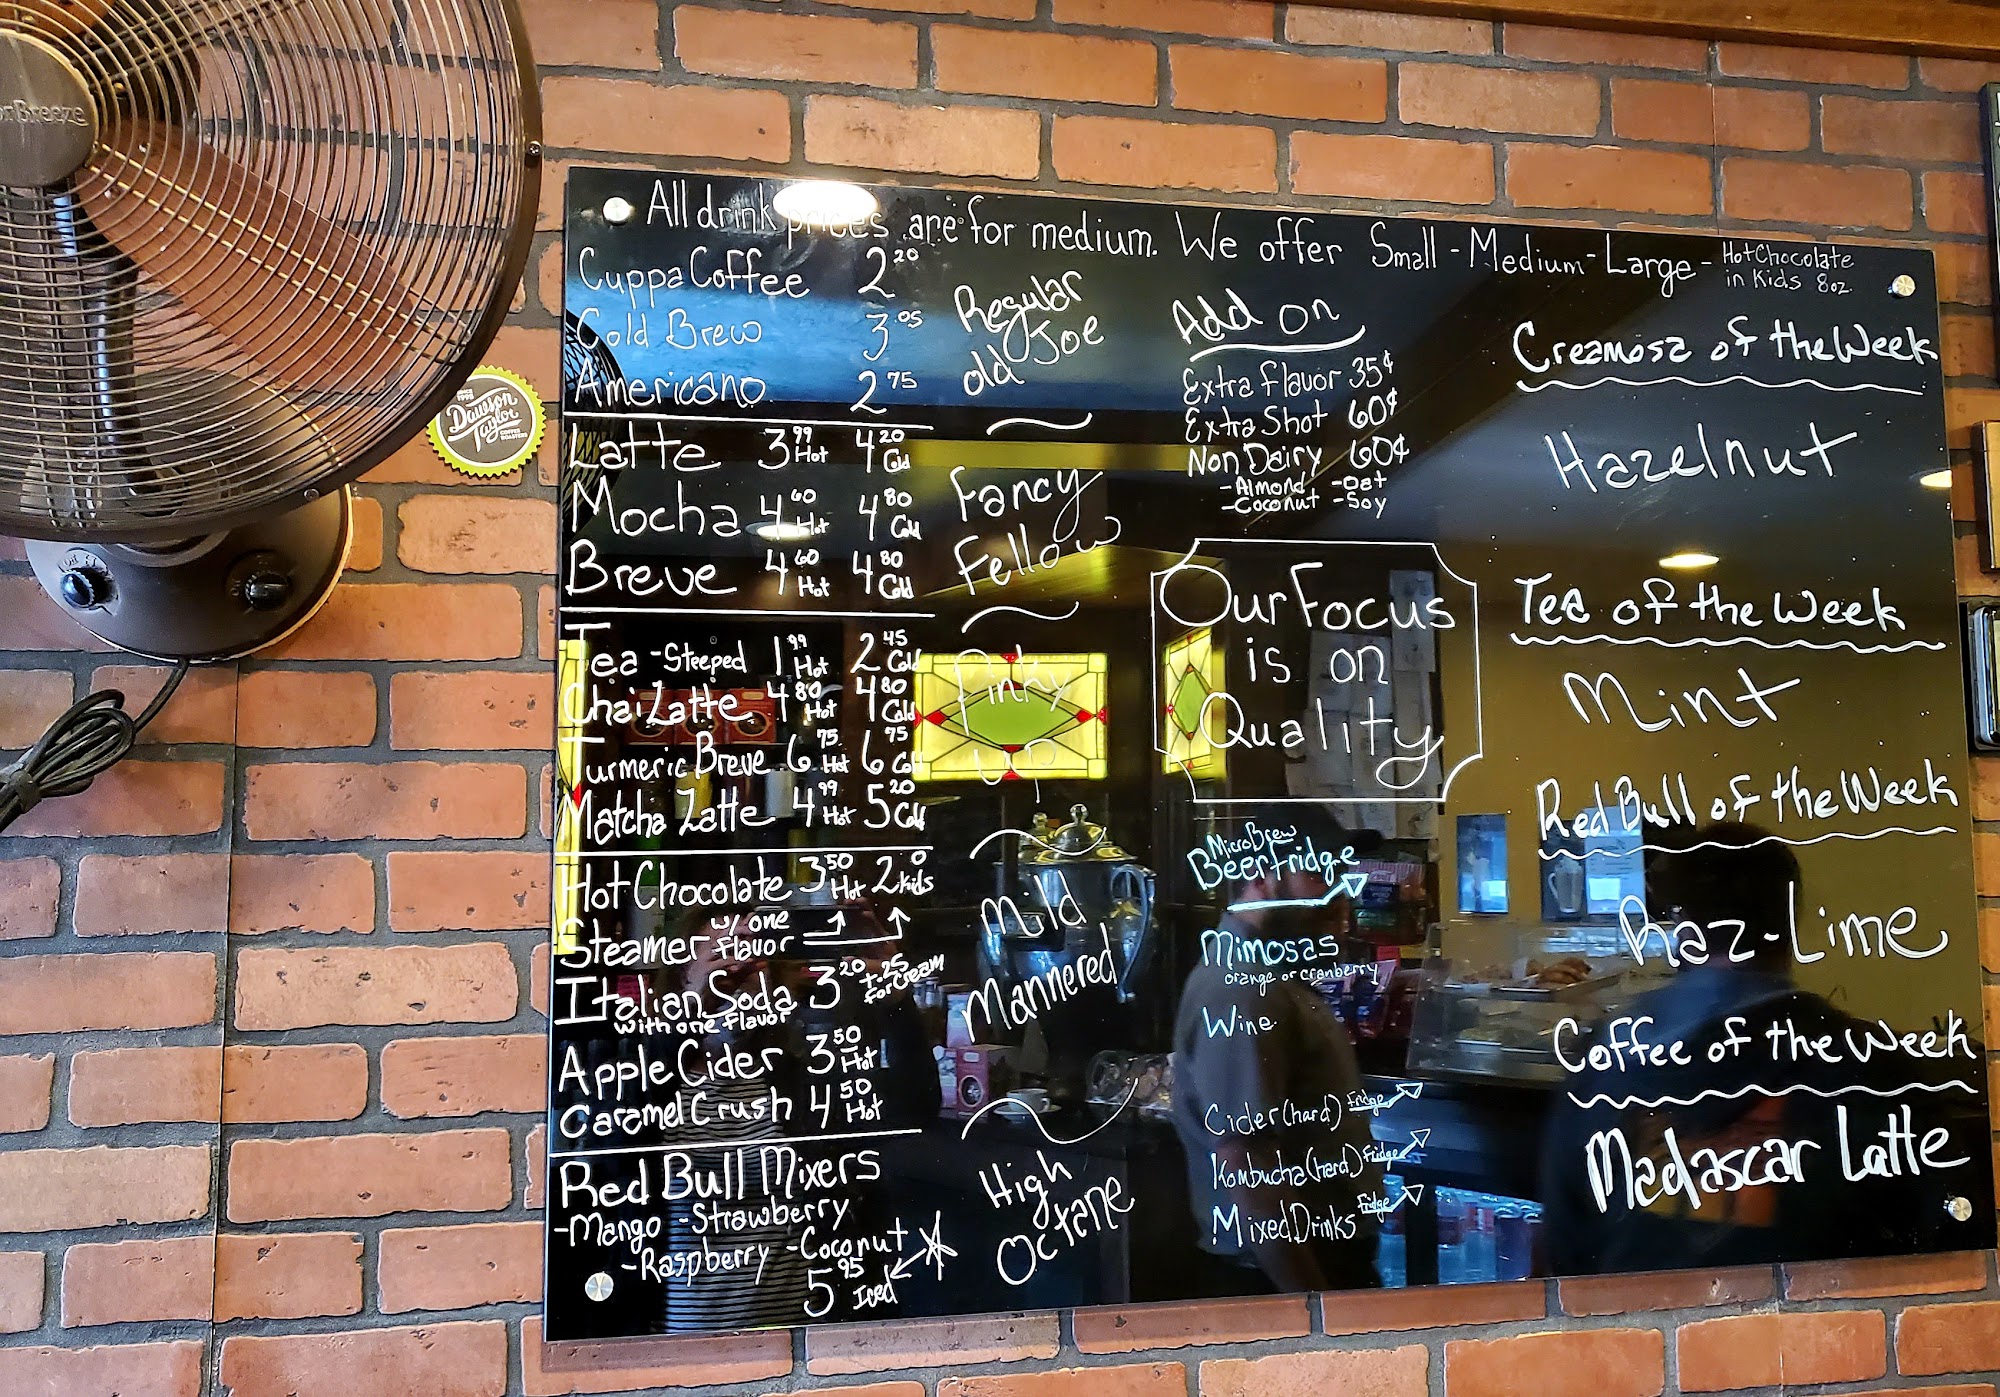 All drink prices are for medium. We offer Small - Medium - Large - Hot Chocolate
in Kids 8oz.
Cuppa Coffee 2.20
Cold Brew 3.05
Americano 2.75
Regular
old Joe
Latte 3.99 Hot 4.20 Cold
Mocha 4.60 Hot 4.80 Cold
Breve 4.60 Hot 4.80 Cold
Fancy
Fellow
Tea - Steeped 1.99 Hot 2.45 Cold
Chai Latte 4.80 Hot 4.80 Cold
Turmeric Breve 6.75 Hot 6.75 Cold
Matcha Latte 4.99 Hot 5.20 Cold
Pinky
up
Hot Chocolate 3.50 Hot 2 kids
Steamer w/ one
flavor
Italian Soda 3.20 + .25
for cream
with one flavor
Apple Cider 3.50 Hot
Caramel Crush 4.50 Hot
Mild
Mannered
Red Bull Mixers
- Mango - Strawberry
- Raspberry - Coconut
5.95 Iced
High
Octane
Add on
Extra flavor 35¢
Extra Shot 60¢
Non Dairy 60¢
- Almond - Oat
- Coconut - Soy
Our Focus
is on
Quality
MicroBrew
Beer fridge
Mimosas
orange or cranberry
Wine
Cider (hard) Fridge
Kombucha (hard) Fridge
Mixed Drinks Fridge
Creamosa of the Week
Hazelnut
Tea of the Week
Mint
Red Bull of the Week
Raz-Lime
Coffee of the Week
Madascar Latte
Dawson
Taylor
COFFEE
ROASTERS